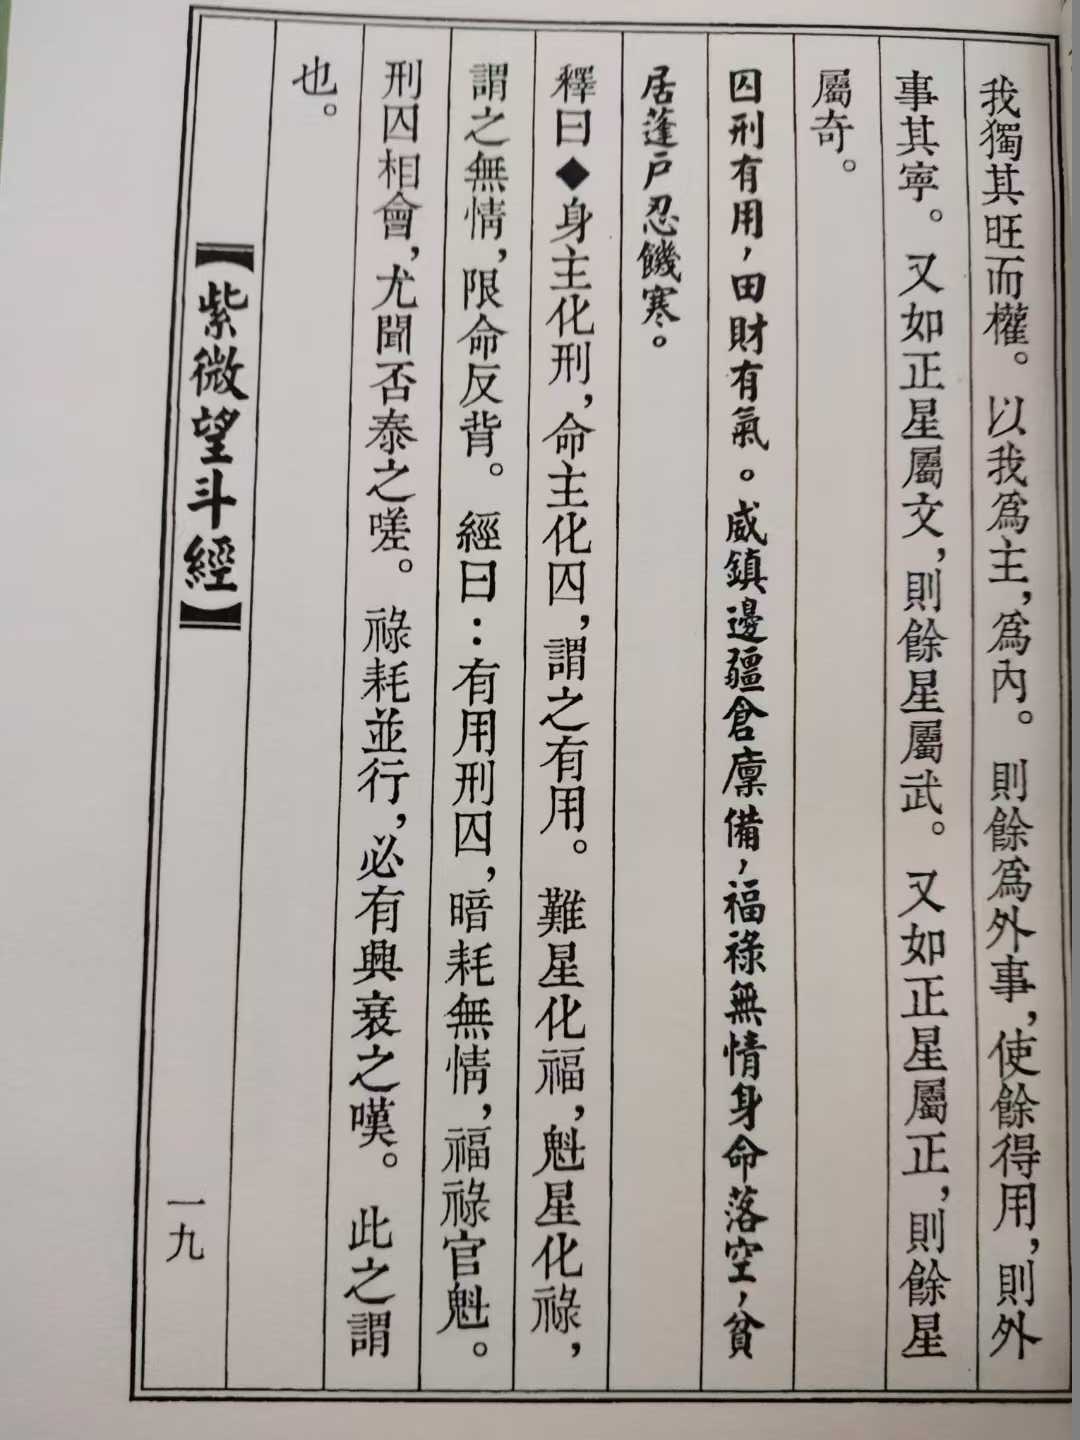 我獨其旺而權。以我為主，為內。則餘為外事，使餘得用，則外
事其寧。又如正星屬文，則餘星屬武。又如正星屬正，則餘星
屬奇。
囚刑有用，田財有氣。威鎮邊疆倉廩備，福祿無情身命落空，貧
居蓬戶忍饑寒。
釋曰◆身主化刑，命主化囚，謂之有用。難星化福，魁星化祿，
謂之無情，限命反背。經曰：有用刑囚，暗耗無情，福祿官魁。
刑囚相會，尤聞否泰之嗟。祿耗並行，必有興衰之嘆。此之謂
也。
【紫微望斗經】
一九